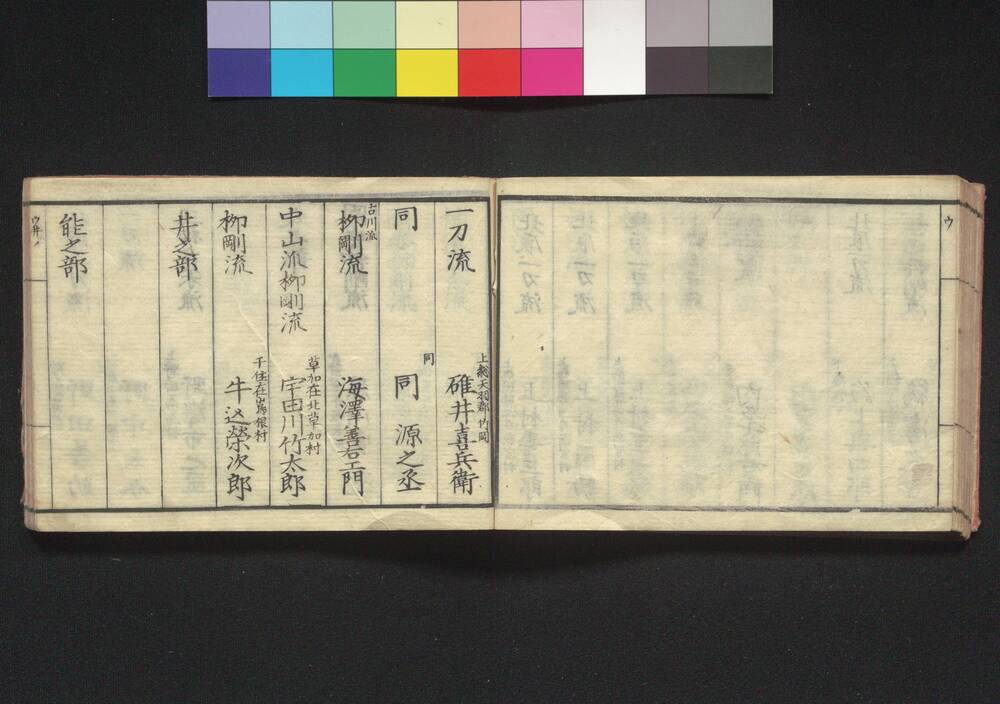 ウ
一刀流 上総天羽郡竹岡 碓井喜兵衛
同 同 同 源之丞
古川派 柳剛流 海澤善右エ門
中山派柳剛流 草加在北草加村 宇田川竹太郎
柳剛流 千住在嶌根村 牛込榮次郎
井之部
能之部
ウ井ノ